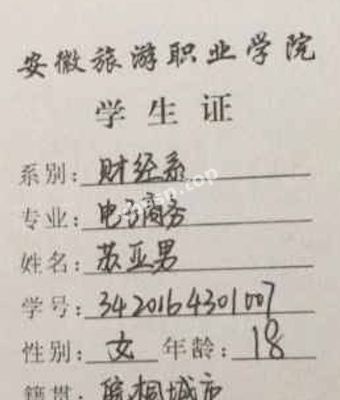 安徽旅游职业学院
学生证
系别: 财经系
专业: 电子商务
姓名: 苏亚男
学号: 3420164301007
性别: 女 年龄: 18
籍贯: 皖桐城市